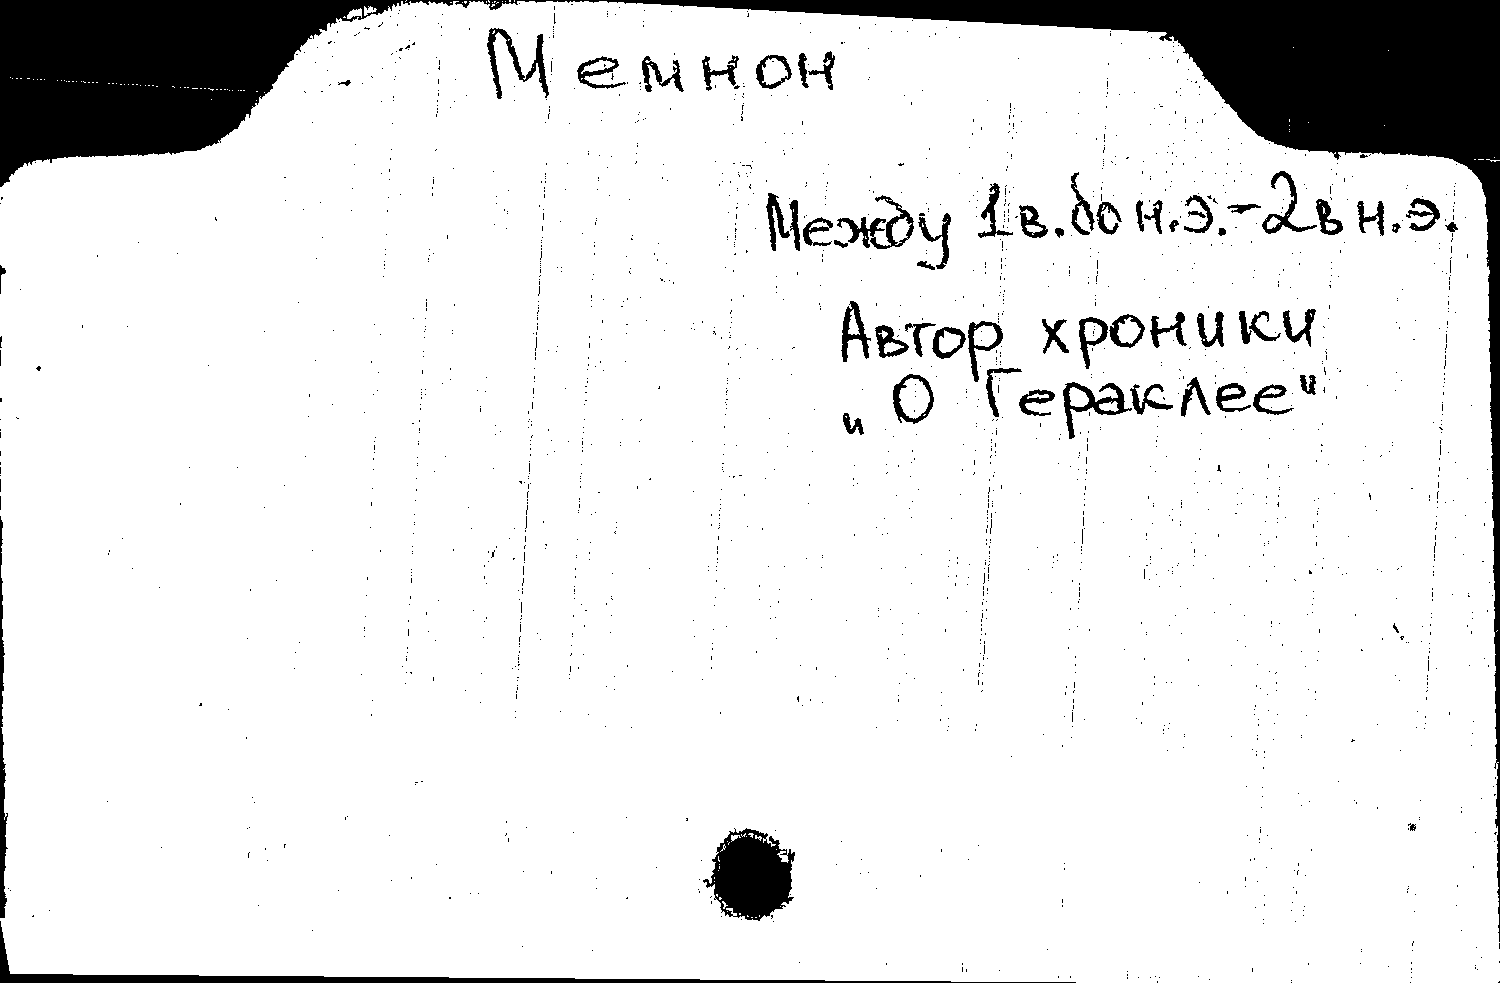 Мемнон
Между 1 в. до н.э. - 2 в н.э.
Автор хроники
„О Гераклее"